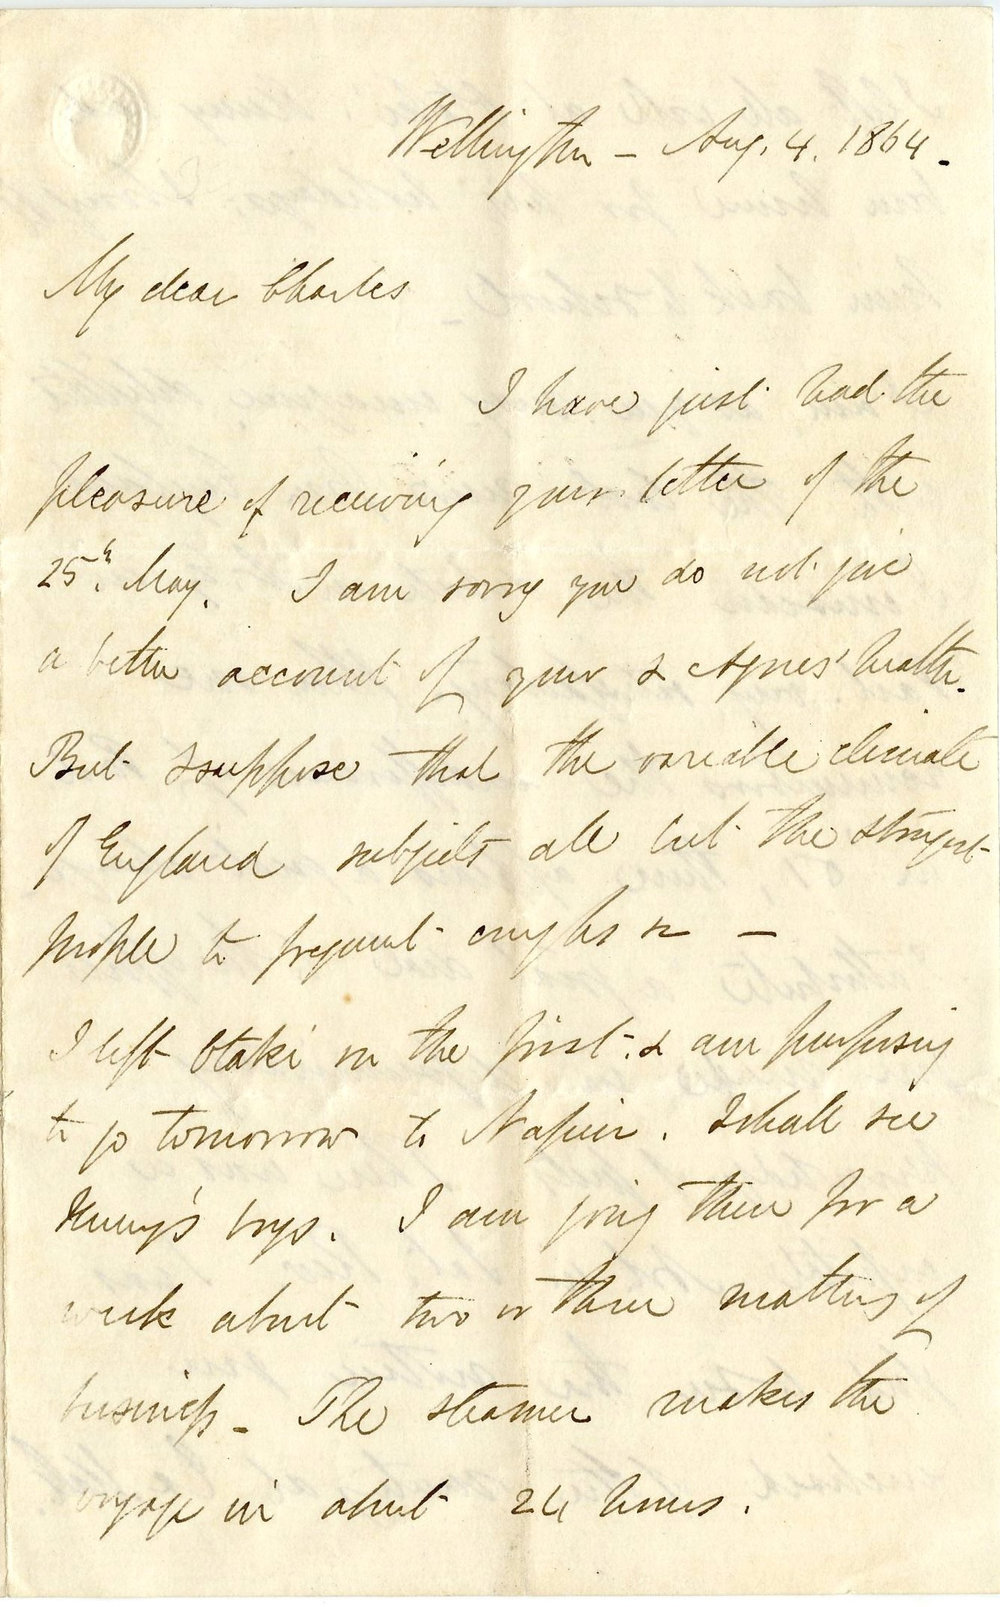 Wellington – Aug. 4. 1864.
My dear Charles
I have just had the
pleasure of receiving your letter of the
25th. May. I am sorry you do not give
a better account of your & Agnes' health.
But I suppose that the variable climate
of England subjects all but the strongest
people to frequent coughs &c –
I left Otaki on the first. & am purposing
to go tomorrow to Napier. I shall see
Henry's boys. I am going there for a
week about two or three matters of
business – The steamer makes the
voyage in about 24 hours.